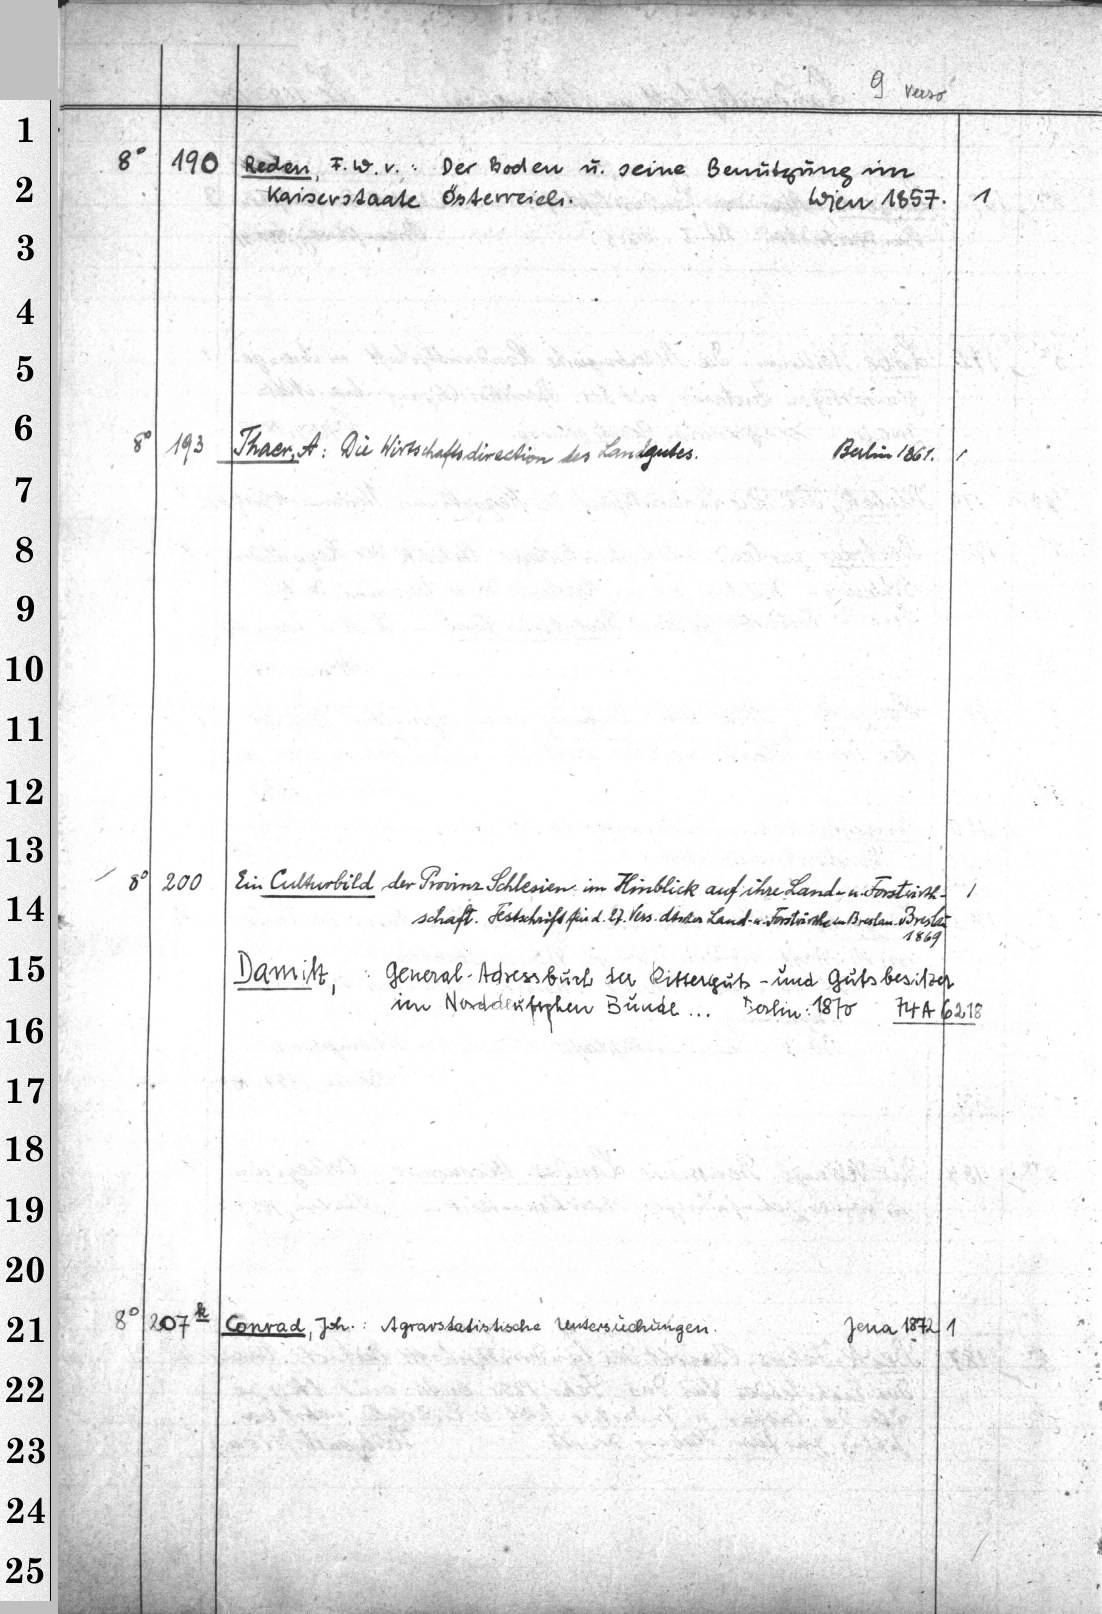 9 verso
8° 190 Reden, F.W.v.: Der Boden u. seine Benützüng im
Kaiserstaate Österreich. Wien 1857. 1
8° 193 Thaer, A: Die Wirtschaftsdirection des Landgutes. Berlin 1861. 1
8° 200 Ein Culturbild der Provinz Schlesien im Hinblick auf ihre Land- u. Forstwirth- 1
schaft. Festschrift für d. 27. Vers. dtscher Land- u. Forstwirthe in Breslau. Breslau
1869
Damitz, : General-Adressbuch der Ritterguts- und Gutsbesitzer
im Norddeutschen Bunde... Berlin: 1870 74 A 6218
8° 207 k Conrad, Joh.: Agrarstatistische Untersüchüngen. Jena 1872 1
1
2
3
4
5
6
7
8
9
10
11
12
13
14
15
16
17
18
19
20
21
22
23
24
25